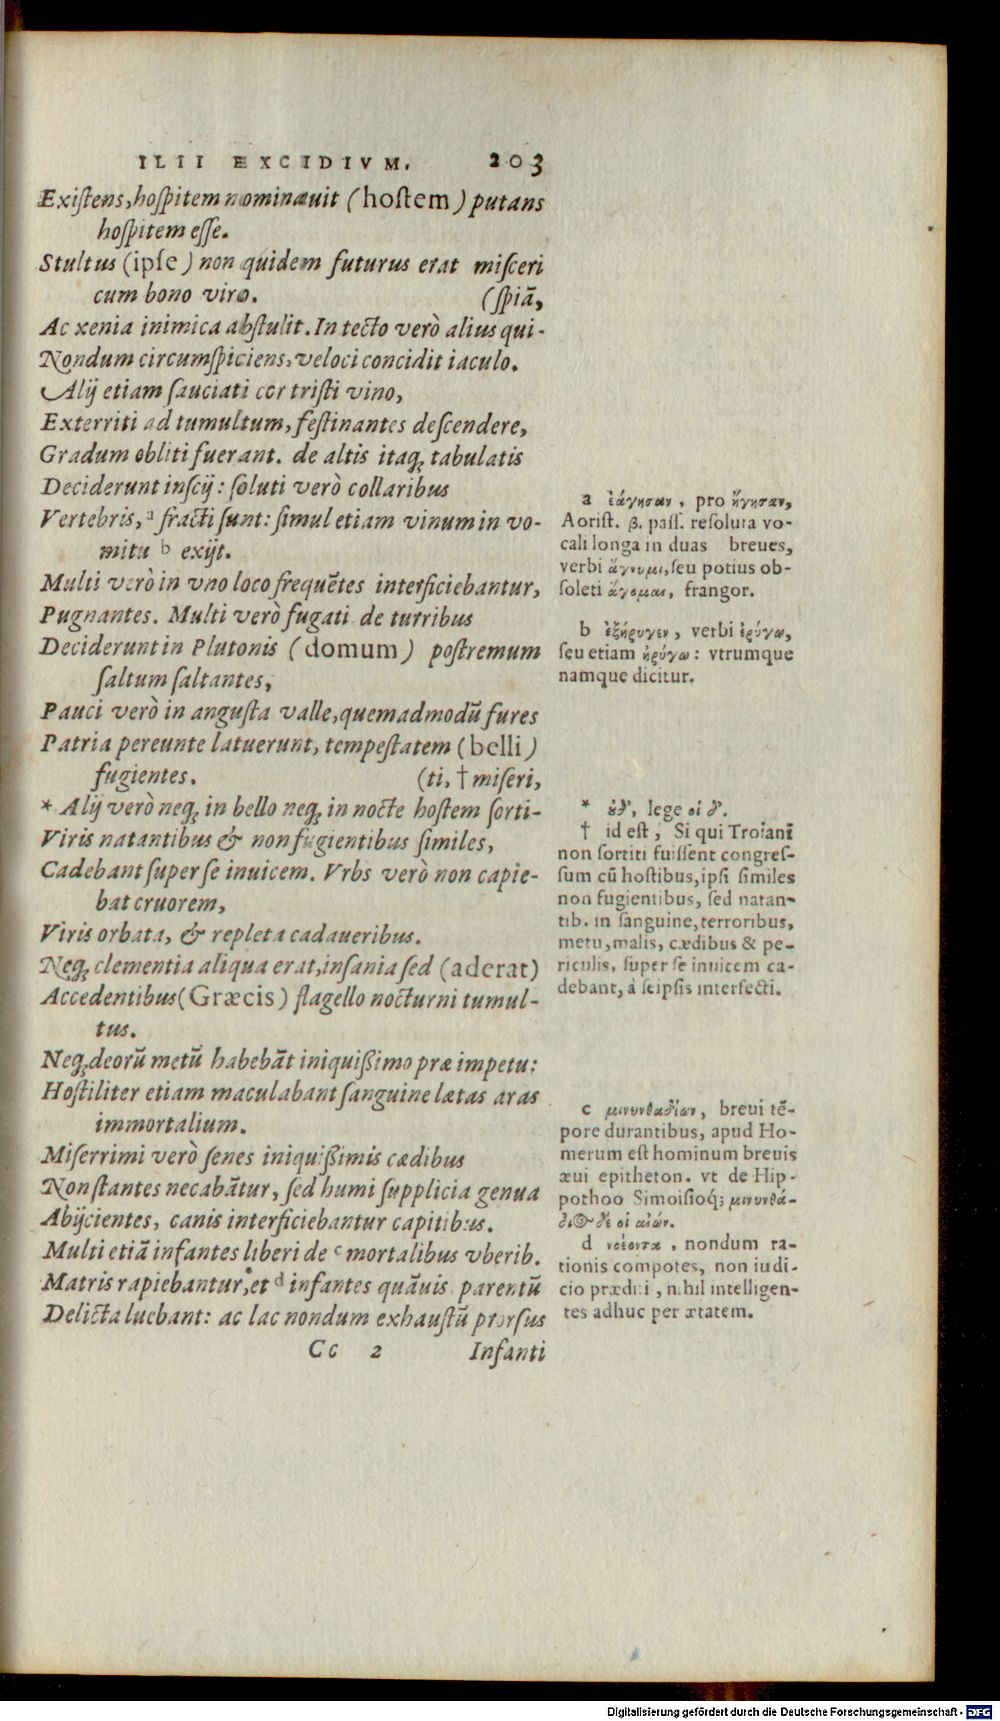 ILII EXCIDIVM. 203
Exiſtens, hoſpitem nominauit (hoſtem) putans
hoſpitem eſſe.
Stultus (ipſe) non quidem futurus erat miſceri
cum bono viro. (ſpiā,
Ac xenia inimica abſtulit. In tecto verò alius qui-
Nondum circumſpiciens, veloci concidit iaculo.
Alij etiam ſauciati cor triſti vino,
Exterriti ad tumultum, feſtinantes deſcendere,
Gradum obliti fuerant. de altis itaq; tabulatis
Deciderunt inſcij: ſoluti verò collaribus
Vertebris, a fracti ſunt: ſimul etiam vinum in vo-
mitu b exijt.
Multi verò in vno loco frequētes interficiebantur,
Pugnantes. Multi verò fugati de turribus
Deciderunt in Plutonis (domum) poſtremum
ſaltum ſaltantes,
Pauci verò in anguſta valle, quemadmodū fures
Patria pereunte latuerunt, tempeſtatem (belli)
fugientes. (ti, † miſeri,
* Alij verò neq; in bello neq; in nocte hoſtem ſorti-
Viris natantibus & non fugientibus ſimiles,
Cadebant ſuper ſe inuicem. Vrbs verò non capie-
bat cruorem,
Viris orbata, & repleta cadaueribus.
Neq; clementia aliqua erat, inſania ſed (aderat)
Accedentibus (Græcis) flagello nocturni tumul-
tus.
Neq; deorū metū habebāt iniquißimo præ impetu:
Hoſtiliter etiam maculabant ſanguine lætas aras
immortalium.
Miſerrimi verò ſenes iniquißimis cædibus
Non ſtantes necabātur, ſed humi ſupplicia genua
Abijcientes, canis interficiebantur capitibus.
Multi etiā infantes liberi de c mortalibus vberib.
Matris rapiebantur, et d infantes quāuis parentū
Delicta luebant: ac lac nondum exhauſtū prorſus
Cc 2 Infanti
a ἐάγησαν, pro ἤγησαν,
Aoriſt. β. paſſ. reſoluta vo-
cali longa in duas breues,
verbi ἄγνυμι, ſeu potius ob-
ſoleti ἄγομαι, frangor.
b ἐξήρυγεν, verbi ἐρύγω,
ſeu etiam ἠρύγω: vtrumque
namque dicitur.
* ȣδ', lege οἱ δ'.
† id eſt, Si qui Troianī
non ſortiti fuiſſent congreſ-
ſum cū hoſtibus, ipſi ſimiles
non fugientibus, ſed natan-
tib. in ſanguine, terroribus,
metu, malis, cædibus & pe-
riculis, ſuper ſe inuicem ca-
debant, à ſeipſis interfecti.
c μινυνθαδίων, breui tē-
pore durantibus, apud Ho-
merum eſt hominum breuis
æui epitheton. vt de Hip-
pothoo Simoiſioq́; μινυνθά-
διος δὲ οἱ αἰών.
d νοέοντα, nondum ra-
tionis compotes, non iudi-
cio præditi, nihil intelligen-
tes adhuc per ætatem.
Digitalisierung gefördert durch die Deutsche Forschungsgemeinschaft - DFG